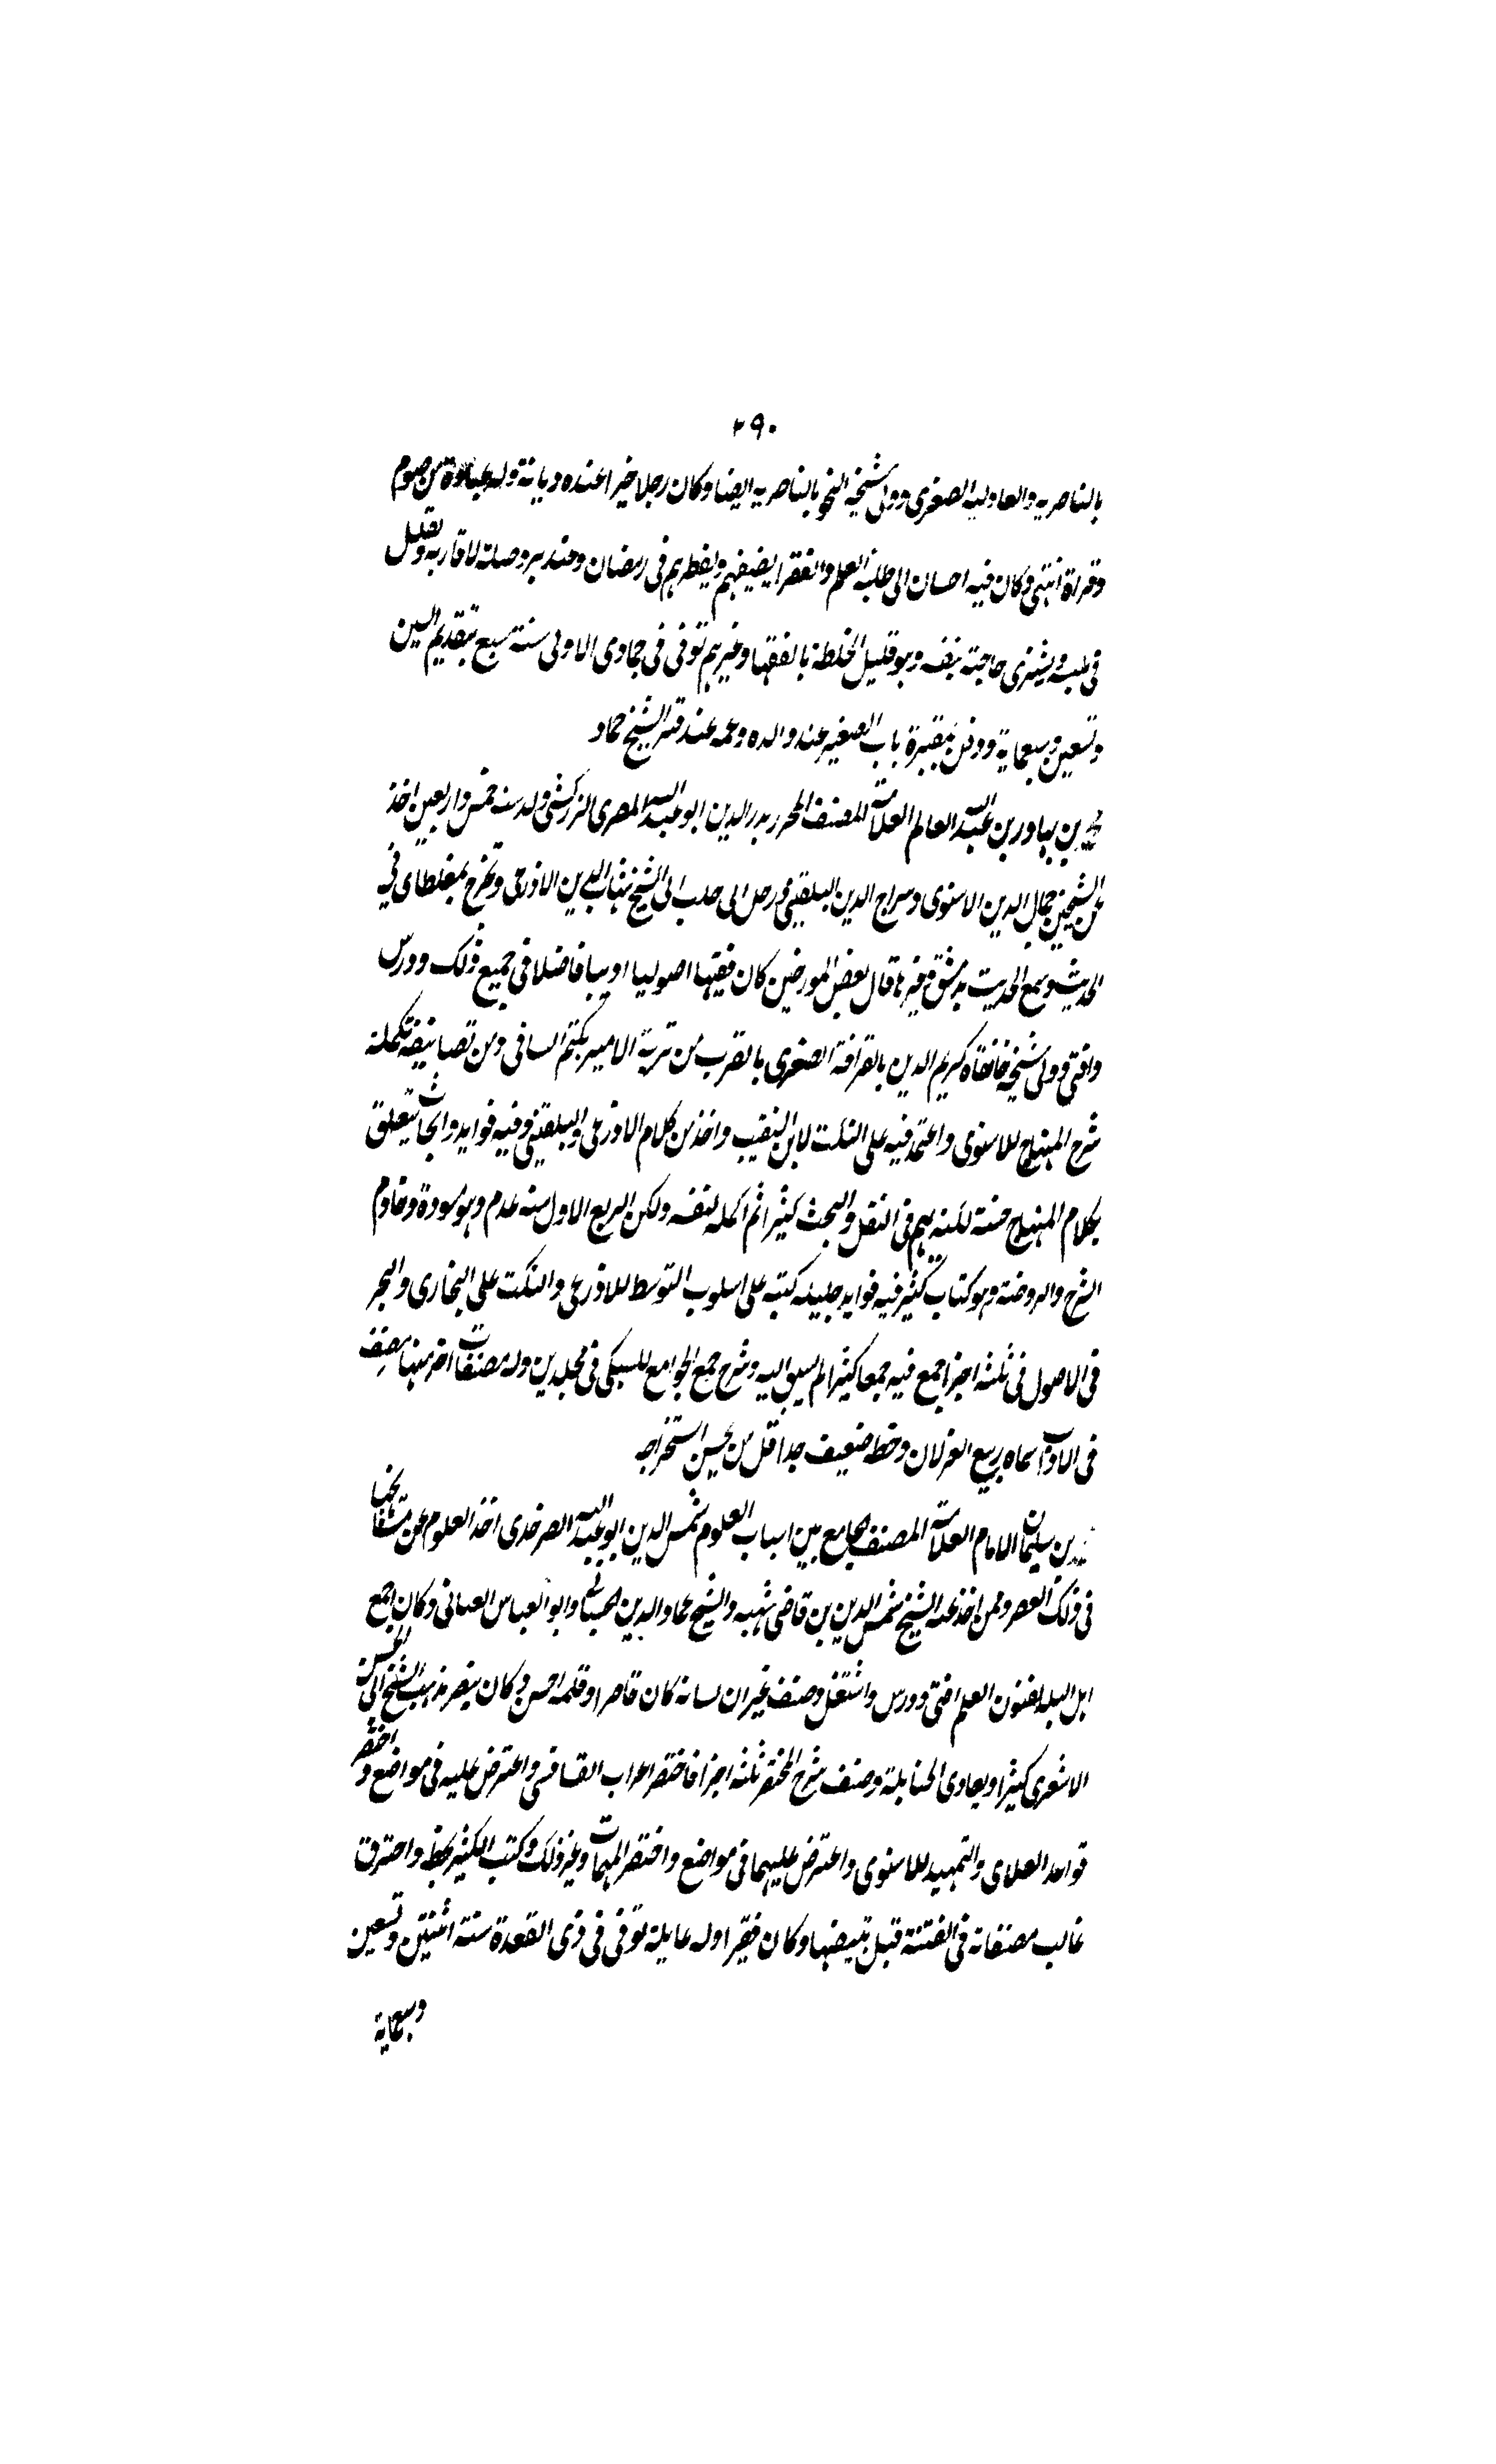 ٢٩٠
بالناصرية والعادلية الصغرى وولى مشيخة النحو بالناصرية ايضا وكان رجلا خيرا عنده ديانة وله عبادة من صوم
وقراة انتهى وكان فيه احسان الى طلبة العلم والفقرا يضيفهم ويفطرهم فى رمضان وعنده بر وصلة لاقاربه وتقلل
فى ملبسه ويشترى حاجته بنفسه وهو قليل الخلطة بالفقها وغيرهم توفى فى جمادى الاولى سنة سبع بتقديم السين
وتسعين وسبعماية ودفن بمقبرة باب الصغير عند والده وعمه عند قبر الشيخ حماد
محمد بن بهادر بن عبد الله العالم العلامة المصنف المحرر بدر الدين ابو عبد الله المصرى الزركشى ولد سنة خمس واربعين اخذ
عن الشيخين جمال الدين الاسنوى وسراج الدين البلقينى ورحل الى حلب الى الشيخ شهاب الدين الاذرعى وتخرج بمغلطاى فى
الحديث وسمع الحديث بدمشق وغيرها قال بعض المورخين كان فقيها اصوليا اديبا فاضلا فى جميع ذلك ودرس
وافتى وولى مشيخة خانقاه كريم الدين بالقرافة الصغرى بالقرب من تربة الامير بكتمر الساقى ومن تصانيفه تكملة
شرح المنهاج للاسنوى واعتمد فيه على النكت لابن النقيب واخذ من كلام الاذرعى والبلقينى وفيه فوايد وابحاث تتعلق
بكلام المنهاج حسنة لكنه يهم فى النقل والبحث كثيرا ثم اكمله لنفسه ولكن الربع الاول منه عدم وهو مسودة وخادم
الشرح والروضة وهو كتاب كثير فيه فوايد جليلة كتبه على اسلوب التوسط للاذرعى والنكت على البخارى والبحر
فى الاصول فى ثلثة اجزا جمع فيه جمعا كثيرا لم يسبق اليه وشرح جمع الجوامع للسبكى فى مجلدين وله مصنفات اخر منها مصنف
فى الادب سماه ربيع الغزلان وخطه ضعيف جدا قل من يحسن استخراجه
محمد بن سليمان الامام العلامة المصنف الجامع بين اسباب العلوم شمس الدين ابو عبد الله الصرخدى اخذ العلوم عن مشايخنا
فى ذلك العصر وممن اخذ عنه الشيخ شمس الدين بن قاضى شهبه والشيخ عماد الدين الحسبانى وابو العباس العنابى وكان اجمع
اهل البلد لفنون العلم افتى ودرس واشتغل وصنف غير ان لسانه كان قاصرا وقلمه احسن وكان ينصر مذهب الشيخ ابى الحسن
الاشعرى كثيرا ويعادى الحنابلة وصنف شرح المختصر ثلثة اجزا فاختصر اعراب السفاقسى واعترض عليه فى مواضع واختصر
قواعد العلاى والتمهيد للاسنوى واعترض عليهما فى مواضع واختصر المهمات وغير ذلك وكتب الكثير بخطه واحترق
غالب مصنفاته فى الفتنة قبل تبييضها وكان فقيرا وله عايلة توفى فى ذى القعدة سنة اثنتين وتسعين
وسبعماية